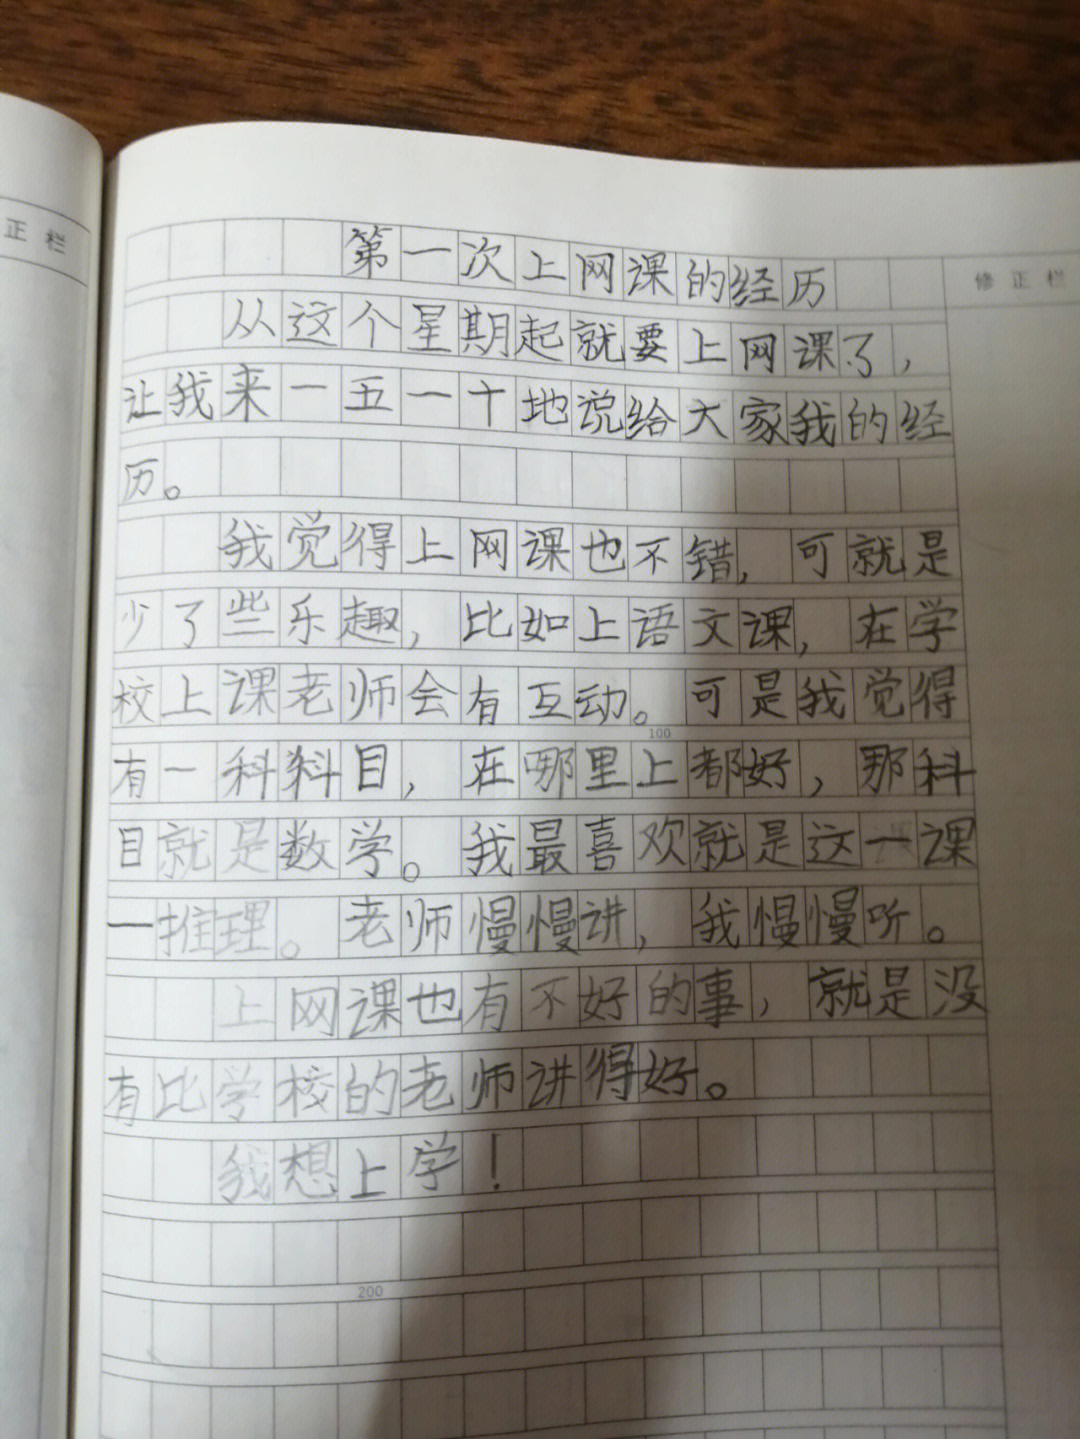 正栏
第一次上网课的经历
修正栏
从这个星期起就要上网课了，
让我来一五一十地说给大家我的经
历。
我觉得上网课也不错，可就是
少了些乐趣，比如上语文课，在学
校上课老师会有互动。可是我觉得
100
有一科科目，在哪里上都好，那科
目就是数学。我最喜欢就是这一课
一推理。老师慢慢讲，我慢慢听。
上网课也有不好的事，就是没
有比学校的老师讲得好。
我想上学！
200